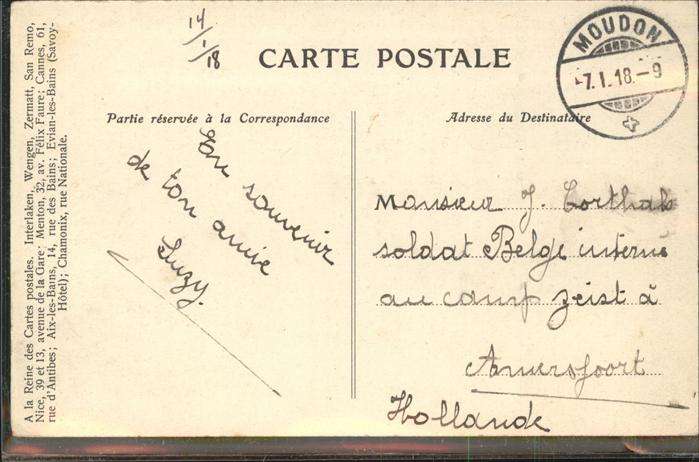 14/1/18
CARTE POSTALE
MOUDON
-7.I.18.-9
Partie réservée à la Correspondance
Adresse du Destinataire
En souvenir
de ton amie
Suzy.
Monsieur J.
soldat Belge interné
au camp Zeist à
Amersfoort
Hollande
A la Reine des Cartes postales. Interlaken, Wengen, Zermatt, San Remo,
Nice, 39 et 13, avenue de la Gare; Menton, 32, av. Félix Faure; Cannes, 61,
rue d'Antibes; Aix-les-Bains, 14, rue des Bains; Evian-les-Bains (Savoy-
Hôtel); Chamonix, rue Nationale.